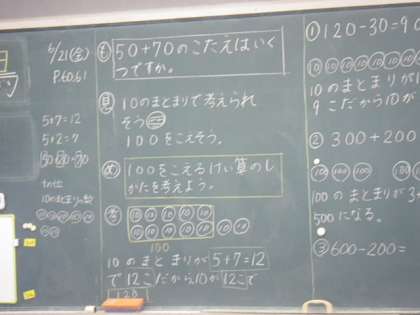 6/21(金)
P.60.61
5+7=12
5+2=7
50+20=70
10のまとまりの数
も
50+70のこたえはいく
つですか。
見
10のまとまりで考えられ
そう
100をこえそう。
め
100をこえるけい算のし
かたを考えよう。
考
10 10 10 10 10
10 10 10 10 10 10 10
100
10のまとまりが 5+7=12
で12こだから10が 12こで
120
① 120-30=90
10 10 10 10 10 10 10 10
10のまとまりが1
9こだから10が
② 300+200
100 100 100 100 10
100のまとまりが3+
500になる。
③ 600-200=